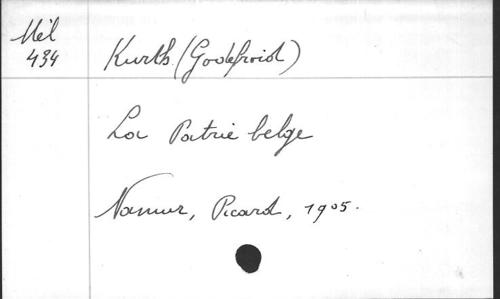 Mél
434
Kurth. (Godefroid)
La Patrie belge
Namur, Picard, 1905.